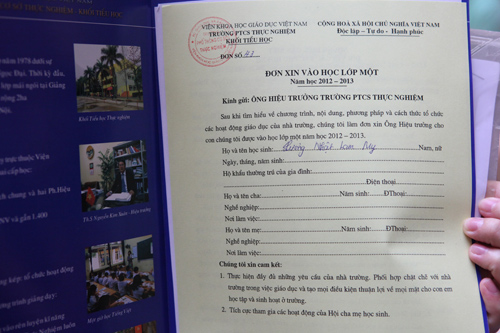 VIỆN KHOA HỌC GIÁO DỤC VIỆT NAM
TRƯỜNG PTCS THỰC NGHIỆM
KHỐI TIỂU HỌC
ĐƠN SỐ
CỘNG HOÀ XÃ HỘI CHỦ NGHĨA VIỆT NAM
Độc lập - Tự do - Hạnh phúc
ĐƠN XIN VÀO HỌC LỚP MỘT
Năm học 2012 – 2013
Kính gửi: ÔNG HIỆU TRƯỞNG TRƯỜNG PTCS THỰC NGHIỆM
Sau khi tìm hiểu về chương trình, nội dung, phương pháp và cách thức tổ chức
các hoạt động giáo dục của nhà trường, chúng tôi làm đơn xin Ông Hiệu trưởng cho
con chúng tôi được vào học lớp một năm học 2012 – 2013.
Họ và tên học sinh: Nhật Nam, nữ
Ngày, tháng, năm sinh:
Hộ khẩu thường trú của gia đình:
Điện thoại
Họ và tên cha: Năm sinh: ĐThoại:
Nghề nghiệp:
Nơi làm việc:
Họ và tên mẹ: Năm sinh: ĐThoại:
Nghề nghiệp:
Nơi làm việc:
Chúng tôi xin cam kết:
1. Thực hiện đầy đủ những yêu cầu của nhà trường. Phối hợp chặt chẽ với nhà
trường trong việc giáo dục và tạo mọi điều kiện thuận lợi về mọi mặt cho con em
học tập và sinh hoạt ở trường.
2. Tích cực tham gia các hoạt động của Hội cha mẹ học sinh.
Khối Tiểu học Thực nghiệm
Th.S Nguyễn Kim - Hiệu trưởng
Một giờ học Tiếng Việt
1978 dưới sự
Ngọc Đại. Thời kỳ đầu,
lớp mái ngói tại Giảng
rộng 2ha
Nội.
trực thuộc Viện
hai cấp học:
chung và hai Ph.Hiệu
NV và gần 1.400
: tổ chức hoạt động
trình giảng dạy: